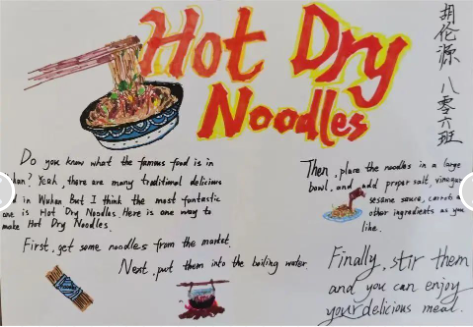 Hot Dry
Noodles
胡伦源 八零六班
Do you know what the famous food is in
? Yeah, there are many traditional delicious
in Wuhan But I think the most fantastic
one is Hot Dry Noodles. Here is one way to
make Hot Dry Noodles.
First, get some noodles from the market.
Next, put them into the boiling water
Then, place the noodles in a large
bowl, and add propar salt, vinegar
sesame sauce, carrot a
other ingredients as you
like.
Finally, stir them
and you can enjoy
your delicious meal.